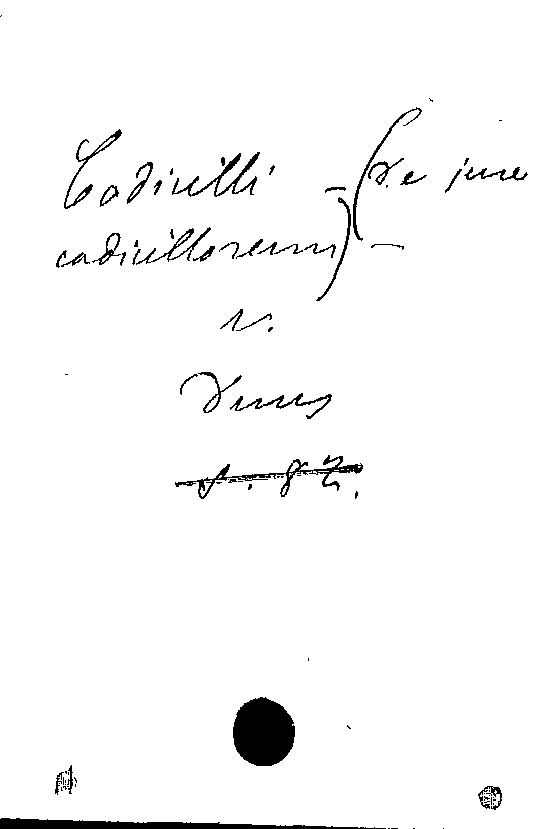 Codicilli – (De jure
codicillorum) –
v.
s. 82.